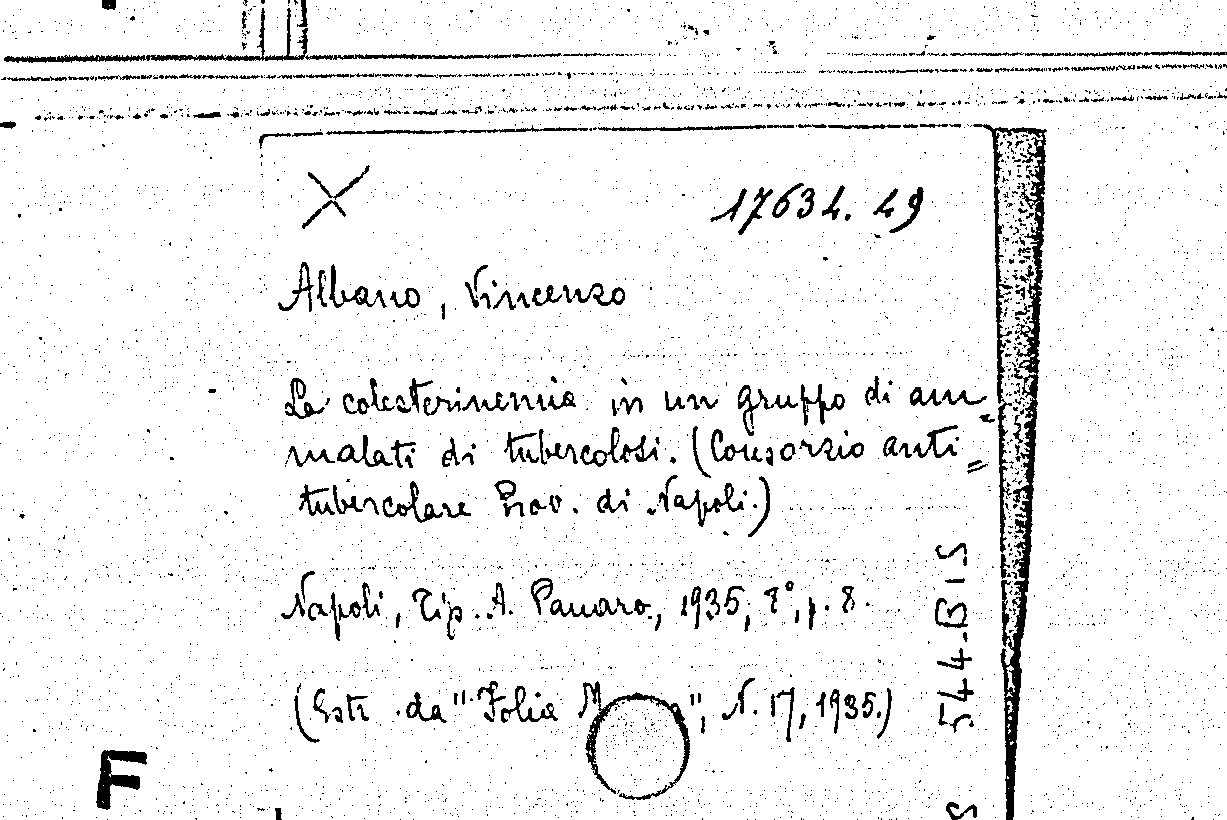 17634. 49
Albano, Vincenzo
La colesterinemia in un gruppo di am-
malati di tubercolosi. (Consorzio anti=
tubercolare Prov. di Napoli.)
Napoli, Tip. A. Panaro, 1935, 8°, p. 8.
(Estr. da "Folia M a", N. 17, 1935.)
544.BIS
F
S